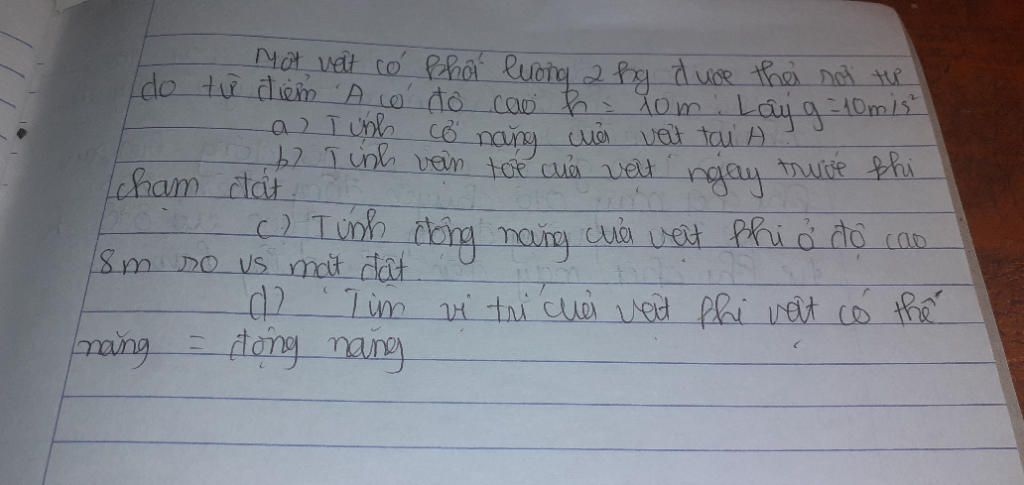 Một vật có khối lượng 2 kg được thả rơi tự
do từ điểm A có độ cao h = 10m. Lấy g = 10m/s²
a) Tính cơ năng của vật tại A.
b) Tính vận tốc của vật ngay trước khi
chạm đất.
c) Tính động năng của vật khi ở độ cao
8m so vs mặt đất
d) Tìm vị trí của vật khi vật có thế
năng = động năng